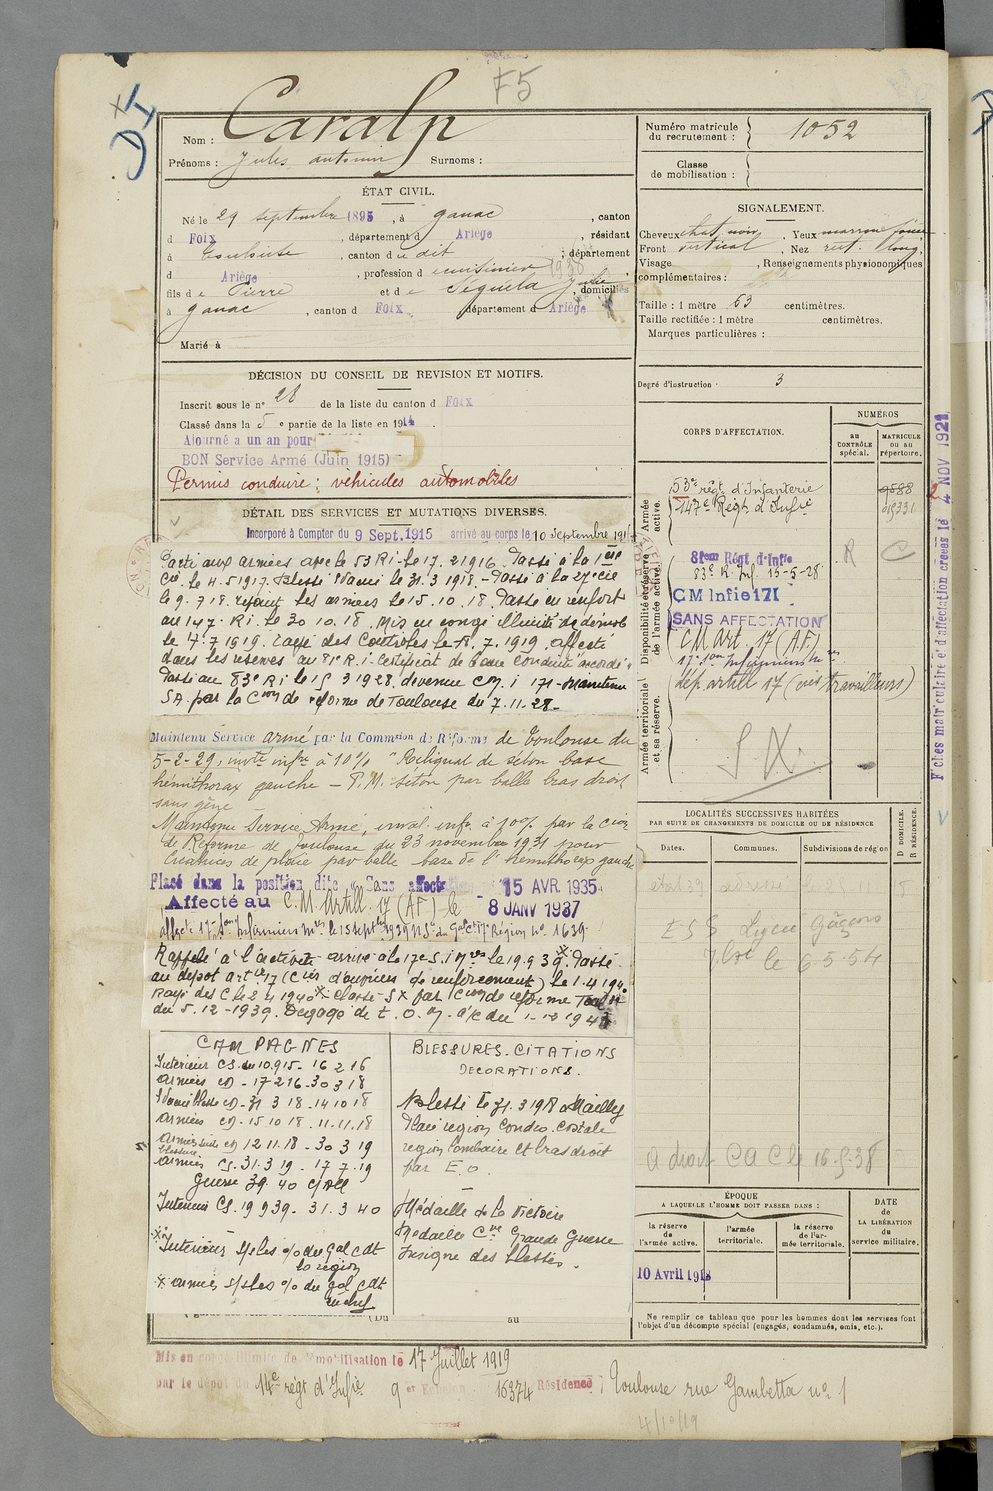 F5
Nom : Caralp
Prénoms : Jules antonin Surnoms :
ÉTAT CIVIL.
Né le 29 septembre 1895, à ganac, canton
d Foix, département d Ariège, résidant
à Toulouse, canton du dit, département
d Ariège, profession d cuisinier
fils de Pierre et de Séguéla Julie, domiciliés
à ganac, canton d Foix, département d Ariège
Marié à
DÉCISION DU CONSEIL DE REVISION ET MOTIFS.
Inscrit sous le n° 28 de la liste du canton d Foix
Classé dans la 5e partie de la liste en 1914.
Ajourné a un an pour
BON Service Armé (Juin 1915)
Permis conduire : véhicules automobiles
DÉTAIL DES SERVICES ET MUTATIONS DIVERSES.
Incorporé à Compter du 9 Sept. 1915 arrivé au corps le 10 Septembre 191
Parti aux armées avec le 53 Ri. le 17.2.1916. Passé à la 1ere
Cie. le 4.5.1917. Blessé évacué le 31.3.1918. - Passé à la 27e cie
le 9.7.18. rejoint les armées le 15.10.18. Passé en renfort
au 147e R.i. le 30.10.18. Mis en congé illimité de démob
le 17.7.1919. rayé des Contrôles le 7.1919. affecté
dans les réserves au 81e R.i. Certificat de bonne conduite accordé.
Passé au 83e Ri le 15 3 1928. devenue C.M. i 171 - Maintenu
SA. par la Cion de réforme de Toulouse du 7.11.28 -
Maintenu Service armé par la Commsion de Réforme de Toulouse du
5-2-29, invté infre à 10% Reliquat de séton base
hémithorax gauche - P.M. séton par balle bras droit
sans gêne -
Maintenu Service Armé, inval. infre à 10% par la Cion
de Réforme de Toulouse du 23 novembre 1931 pour
Cicatrices de plaie par balle base de l'hémithorax gauche
Placé dans la position dite Sans affect 15 AVR 1935
Affecté au C.M. Artill. 17 (AF) le 8 JANV 1937
affecté 17e Son Infirmiers Mres le 15 septbre 1939 N.S. du Gal Ct 17e Région n° 1639
Rappelé à l'activité arrivé à la 17e S.i Mres le 19.9 39. Passé
au dépôt artie 17 (Cies d'ouvriers de renforcement) le 1.4.1940
Rayé des C le 2 4 1940 - Classé SX par Cion de réforme
du 5.12-1939. Dégagé de t. O. M. à/c du 1-12 194
CAMPAGNES
Intérieur CS. du 10.9 15 - 16 2 16
armées CD - 17 2 16 - 30 3 18
CD - 31 3 18 - 14 10 18
armées CD - 15 10 18 - 11.11.18
CD 12 11.18 - 30 3 19
armées CS. 31.3 19 - 17 7.19
Guerre 39. 40 C/All
Intérieur CS. 19 9 39 - 31.3 40
Intérieur S/ les % du gal cdt
la région
armées S/ les % du gal cdt
en chef
BLESSURES - CITATIONS
DÉCORATIONS.
Blessé le 31.3 1918 à Mailly
Plaie région condro-costale
région lombaire et bras droit
par E.O.
Médaille de la Victoire
Médaille Cve Grande Guerre
Insigne des blessés.
(Du au
Mis en congé illimité de démobilisation le 17 Juillet 1919
par le dépôt du 14e régt d'Infie 9 er Echelon 16374 Résidence : Toulouse rue Gambetta n° 1
4/10/19
Numéro matricule
du recrutement : 1052
Classe
de mobilisation :
SIGNALEMENT.
Cheveux chat. noir, Yeux marron foncé
Front vertical, Nez rect. long,
Visage, Renseignements physionomiques
complémentaires :
Taille : 1 mètre 63 centimètres.
Taille rectifiée : 1 mètre centimètres.
Marques particulières :
Degré d'instruction : 3
CORPS D'AFFECTATION.
NUMÉROS
au CONTRÔLE spécial.
MATRICULE ou au répertoire.
Armée active.
53e régt d'Infanterie 9588
147e Régt d'Infie 15331
Disponibilité et réserve de l'armée active.
81eme Régt d'Infie R C
83e R. Inf. 15-5-28
CM Infie 171
SANS AFFECTATION
C.M Art. 17 (A.F.)
17e Son Infirmiers Mres
dép. artill 17 (cies travailleurs)
Armée territoriale et sa réserve.
S X.
Fiches matriculaire et d'affectation créées le 4 NOV 1921
LOCALITÉS SUCCESSIVES HABITÉES
PAR SUITE DE CHANGEMENTS DE DOMICILE OU DE RÉSIDENCE
Dates. Communes. Subdivisions de région
D DOMICILE.
R RÉSIDENCE.
le 6.5-54
a droit CAC le 16-5-38
ÉPOQUE
A LAQUELLE L'HOMME DOIT PASSER DANS :
la réserve de l'armée active.
l'armée territoriale.
la réserve de l'armée territoriale.
DATE de LA LIBÉRATION du service militaire.
10 Avril 1918
Ne remplir ce tableau que pour les hommes dont les services font
l'objet d'un décompte spécial (engagés, condamnés, omis, etc.).